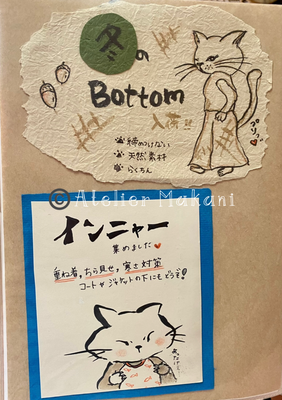 冬の
Bottom
入荷!!
締めつけない
天然素材
らくちん
プリッ
© Atelier Makani
インニャー
集めました
重ね着,ちら見せ,寒さ対策
コートやジャケットの下にもどうぞ!
あったけ〜